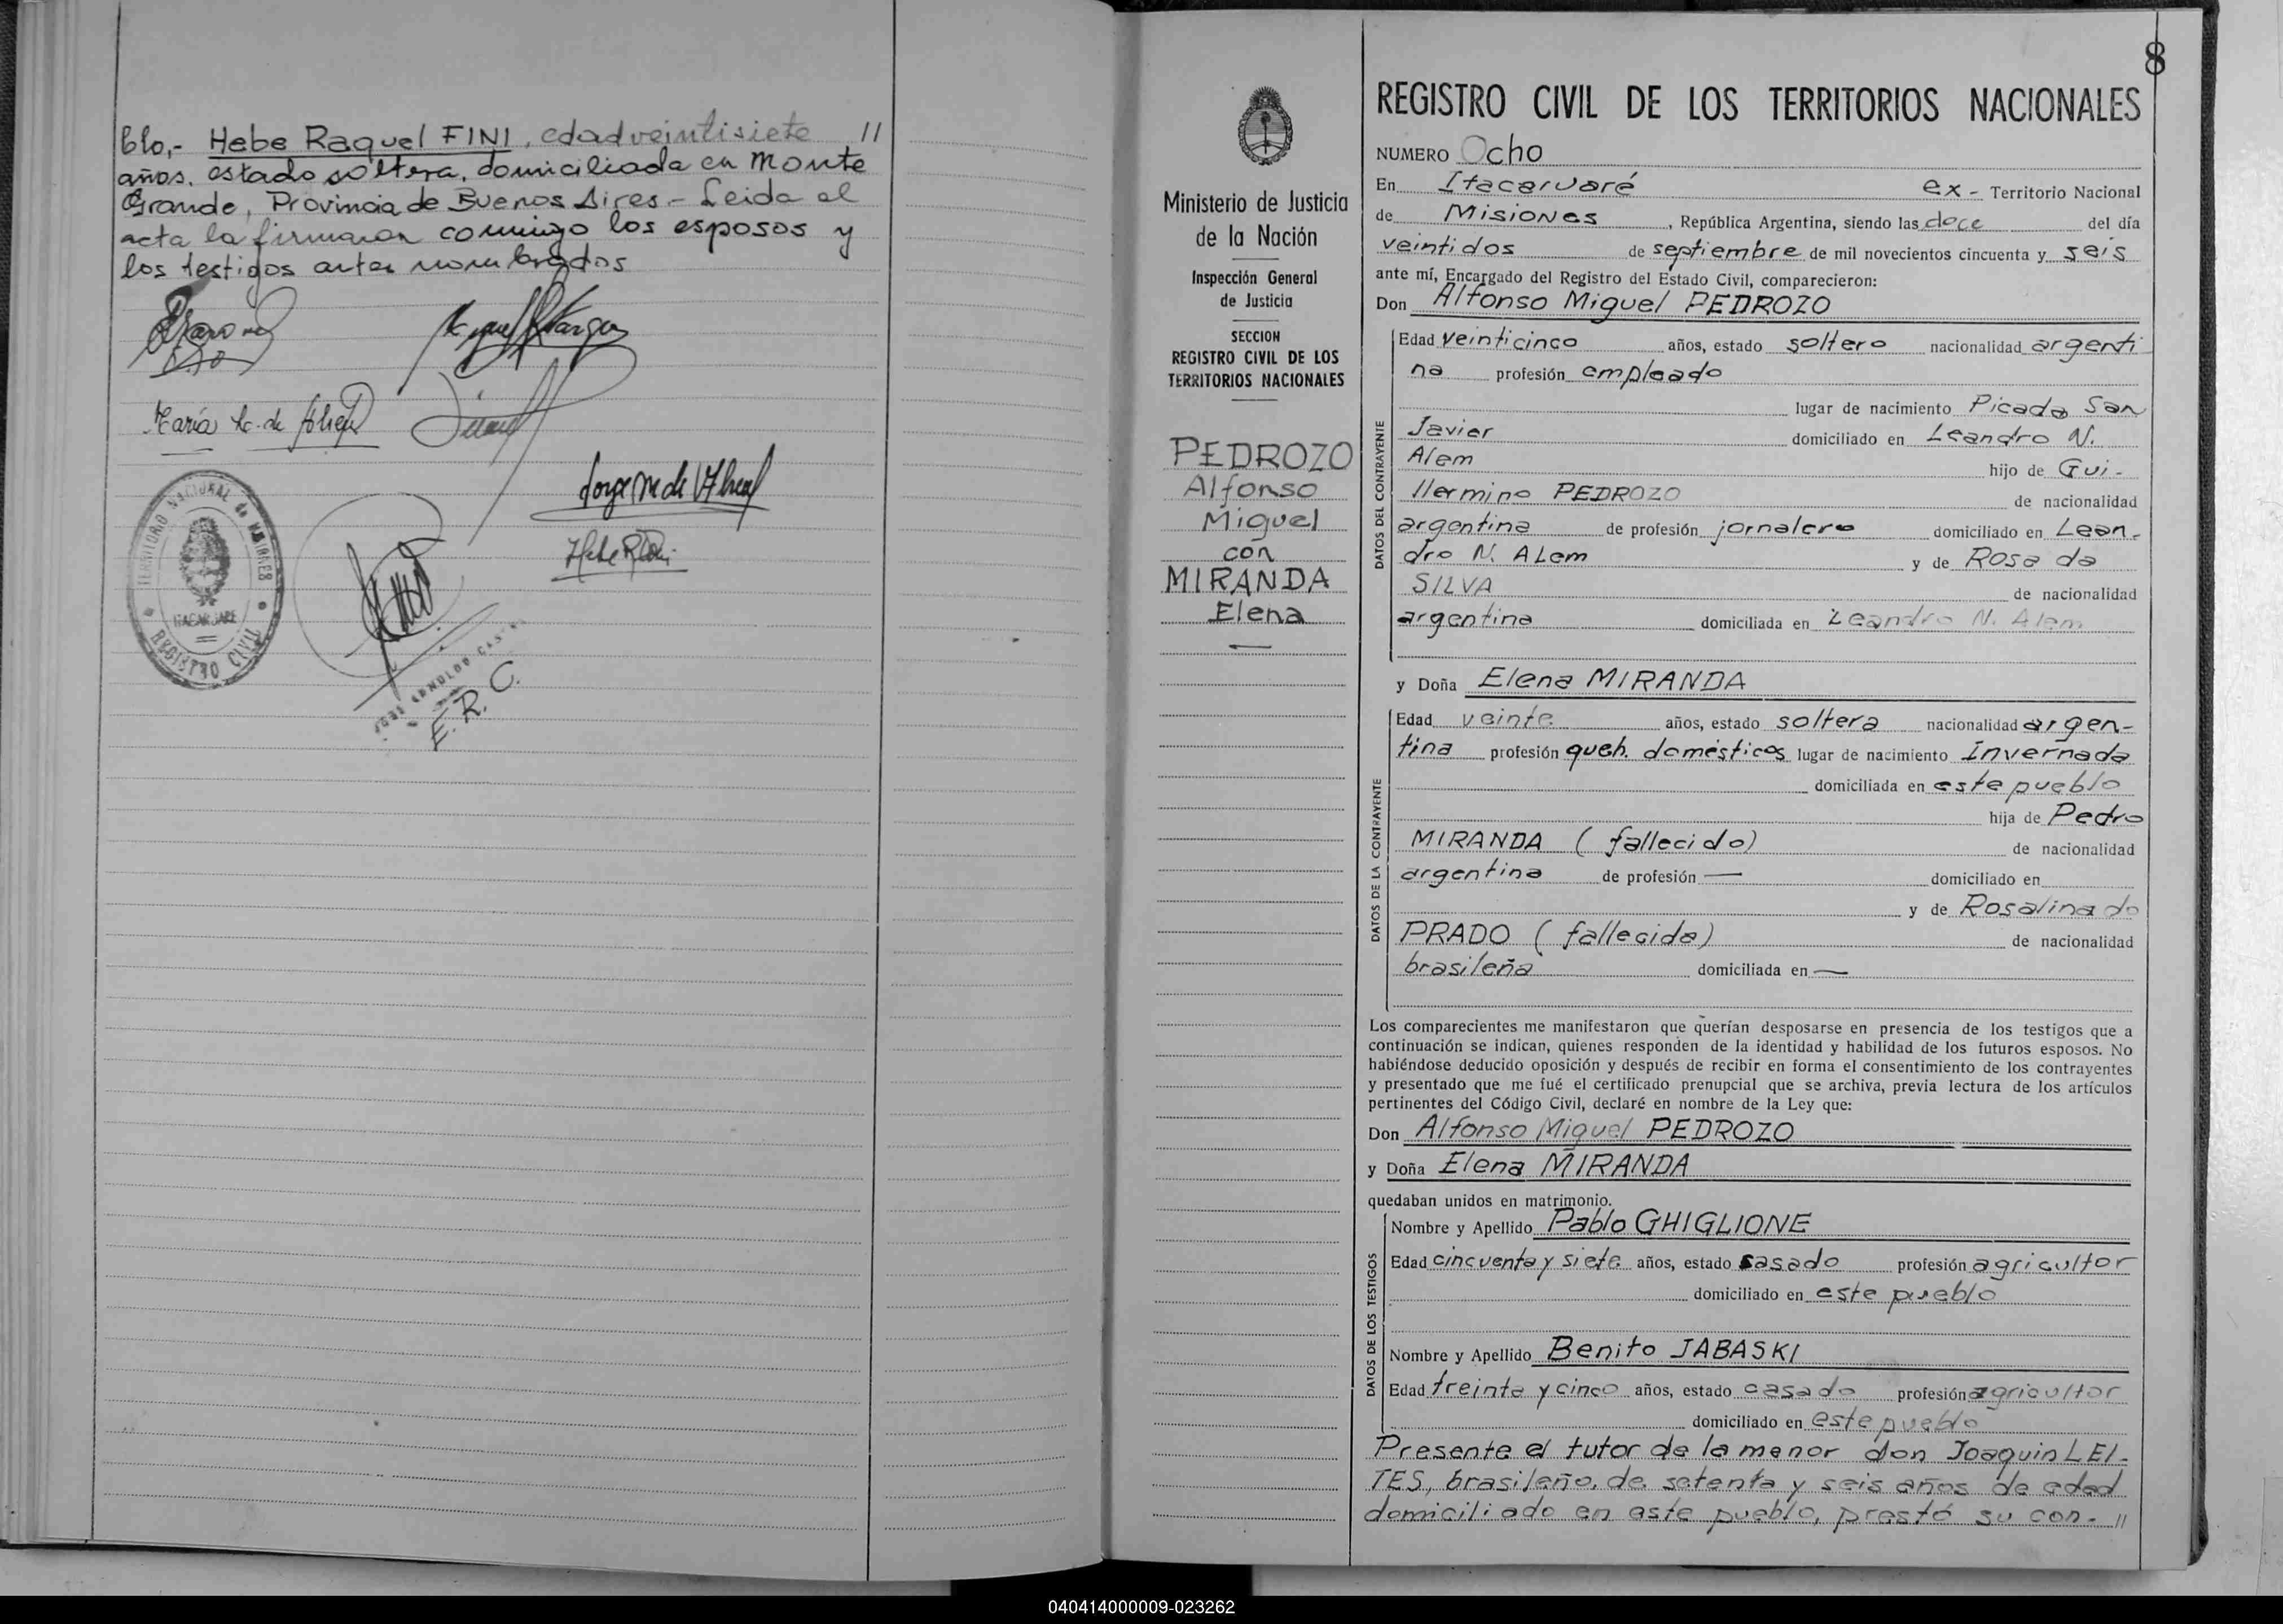 blo,- Hebe Raquel FINI, edad veintisiete //
años, estado soltera, domiciliada en Monte
Grande, Provincia de Buenos Aires - Leida el
acta la firmaron conmigo los esposos y
los testigos antes nombrados
TERRITORIO NACIONAL de MISIONES
ITACARUARE
REGISTRO CIVIL
E.R.C.
8
Ministerio de Justicia
de la Nación
Inspección General
de Justicia
SECCION
REGISTRO CIVIL DE LOS
TERRITORIOS NACIONALES
PEDROZO
Alfonso
Miguel
con
MIRANDA
Elena
REGISTRO CIVIL DE LOS TERRITORIOS NACIONALES
NUMERO Ocho
En Itacaruaré ex - Territorio Nacional
de Misiones, República Argentina, siendo las doce del día
veintidos de septiembre de mil novecientos cincuenta y seis
ante mí, Encargado del Registro del Estado Civil, comparecieron:
Don Alfonso Miguel PEDROZO
DATOS DEL CONTRAYENTE
Edad veinticinco años, estado soltero nacionalidad argenti
na profesión empleado
lugar de nacimiento Picada San
Javier domiciliado en Leandro N.
Alem hijo de Gui-
llermino PEDROZO de nacionalidad
argentina de profesión jornalero domiciliado en Lean-
dro N. ALem y de Rosa da
SILVA de nacionalidad
argentina domiciliada en Leandro N. Alem
y Doña Elena MIRANDA
DATOS DE LA CONTRAYENTE
Edad veinte años, estado soltera nacionalidad argen-
tina profesión queh. domésticos lugar de nacimiento Invernada
domiciliada en este pueblo
hija de Pedro
MIRANDA (fallecido) de nacionalidad
argentina de profesión — domiciliado en
y de Rosalina do
PRADO (fallecida) de nacionalidad
brasileña domiciliada en —
Los comparecientes me manifestaron que querían desposarse en presencia de los testigos que a
continuación se indican, quienes responden de la identidad y habilidad de los futuros esposos. No
habiéndose deducido oposición y después de recibir en forma el consentimiento de los contrayentes
y presentado que me fué el certificado prenupcial que se archiva, previa lectura de los artículos
pertinentes del Código Civil, declaré en nombre de la Ley que:
Don Alfonso Miguel PEDROZO
y Doña Elena MIRANDA
quedaban unidos en matrimonio.
DATOS DE LOS TESTIGOS
Nombre y Apellido Pablo GHIGLIONE
Edad cincuenta y siete años, estado casado profesión agricultor
domiciliado en este pueblo
Nombre y Apellido Benito JABASKI
Edad treinta y cinco años, estado casado profesión agricultor
domiciliado en este pueblo
Presente el tutor de la menor don Joaquin LEI-
TES, brasileño, de setenta y seis años de edad
domiciliado en este pueblo, prestó su con- //
040414000009-023262